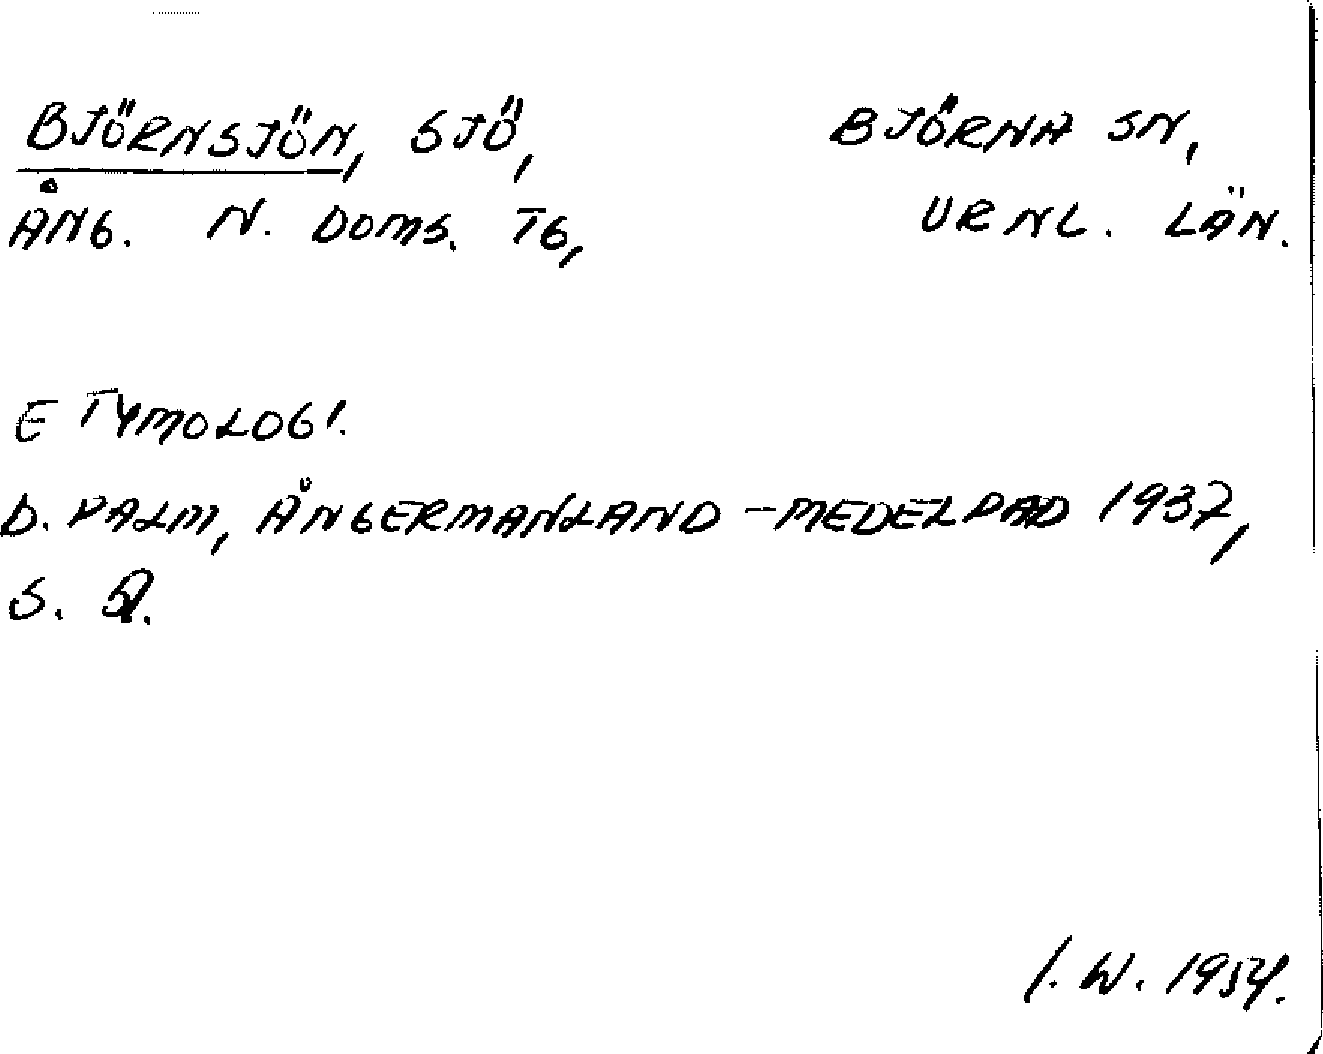 BJÖRNSJÖN, SJÖ, BJÖRNA SN,
ÅNG. N. DOMS. TG, VRNL. LÄN.
ETYMOLOGI.
D. PALM, ÅNGERMANLAND - MEDELPAD 1937,
S.
I. W. 1954.